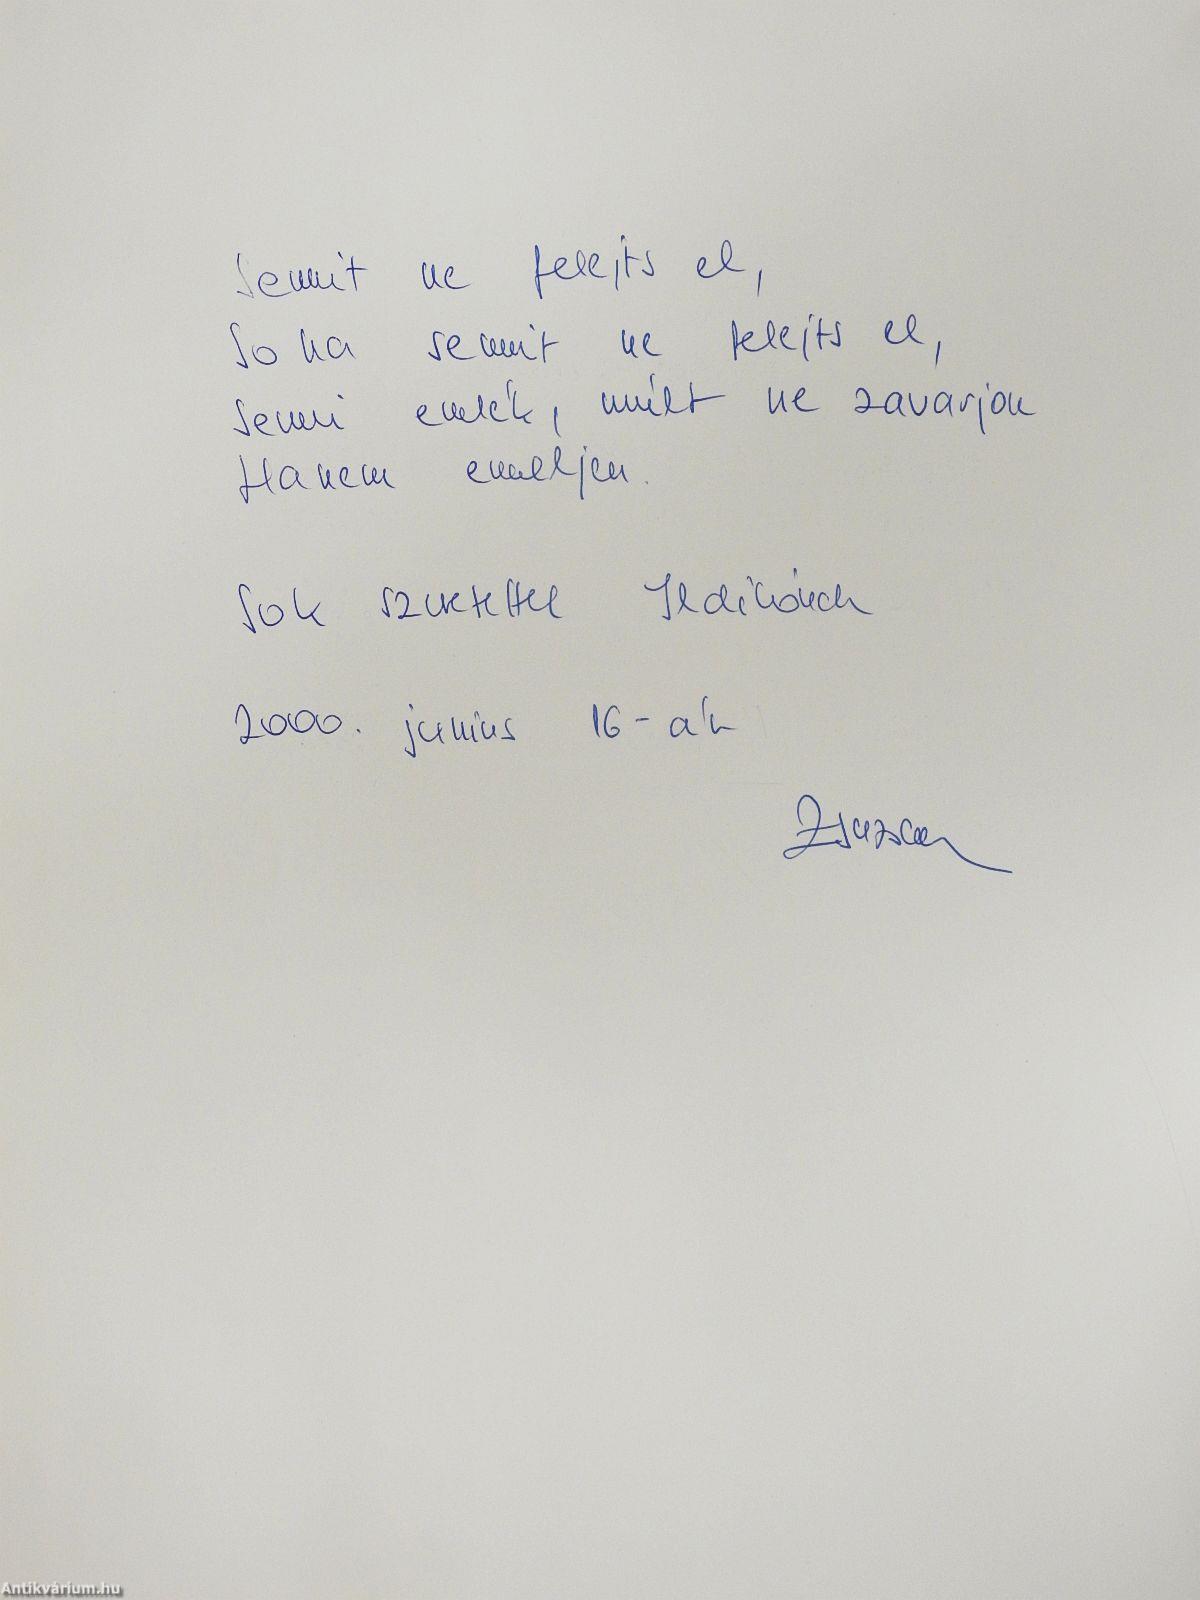 Semmit ne felejts el,
Soha semmit ne felejts el,
semmi emlék, múlt ne zavarjon
Hanem emeljen.
Sok szeretettel Ildikónak
2000. junius 16-án
Zsuzsa
Antikvárium.hu